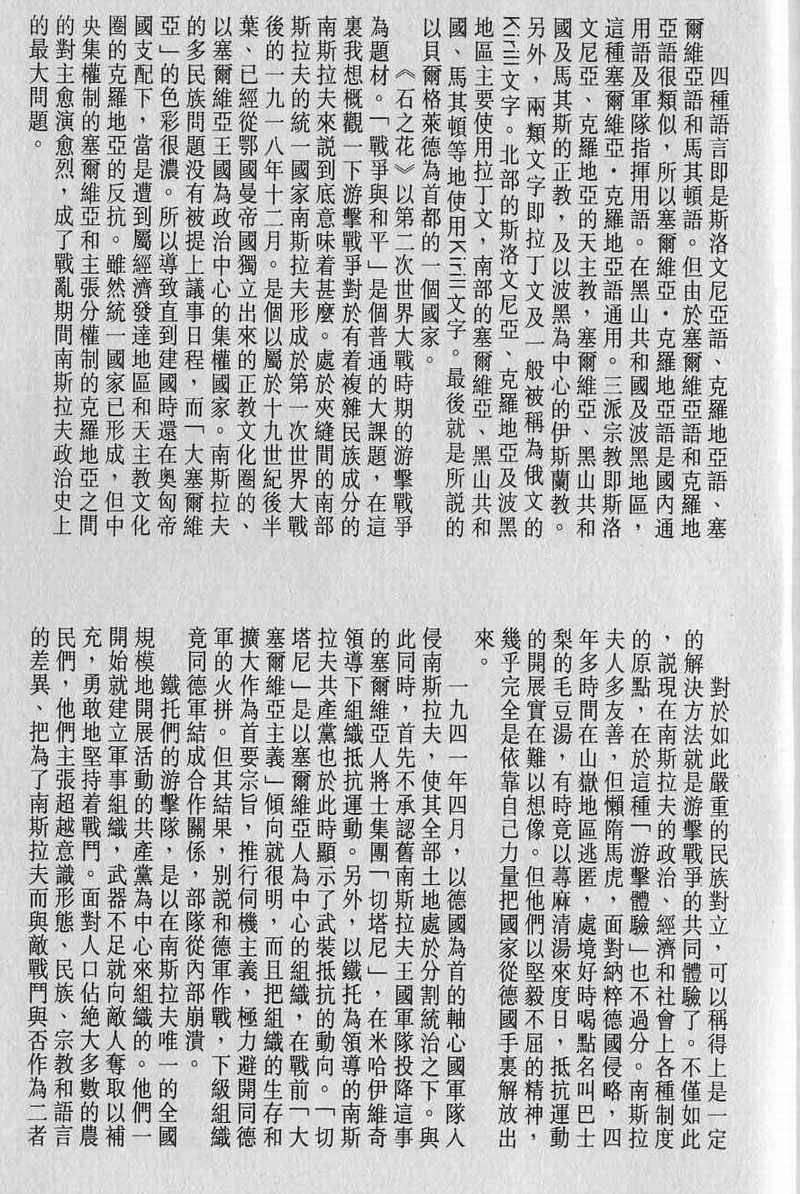 四種語言即是斯洛文尼亞語、克羅地亞語、塞
爾維亞語和馬其頓語。但由於塞爾維亞語和克羅地
亞語很類似，所以塞爾維亞・克羅地亞語是國內通
用語及軍隊指揮用語。在黑山共和國及波黑地區，
這種塞爾維亞・克羅地亞語通用。三派宗教即斯洛
文尼亞、克羅地亞的天主教，塞爾維亞、黑山共和
國及馬其斯的正教，及以波黑為中心的伊斯蘭教。
另外，兩類文字即拉丁文及一般被稱為俄文的
Kirill文字。北部的斯洛文尼亞、克羅地亞及波黑
地區主要使用拉丁文，南部的塞爾維亞、黑山共和
國、馬其頓等地使用Kirill文字。最後就是所説的
以貝爾格萊德為首都的一個國家。
《石之花》以第二次世界大戰時期的游擊戰爭
為題材。「戰爭與和平」是個普通的大課題，在這
裏我想概觀一下游擊戰爭對於有着複雜民族成分的
南斯拉夫來説到底意味着甚麼。處於夾縫間的南部
斯拉夫的統一國家南斯拉夫形成於第一次世界大戰
後的一九一八年十二月。是個以屬於十九世紀後半
葉、已經從鄂國曼帝國獨立出來的正教文化圈的、
以塞爾維亞王國為政治中心的集權國家。南斯拉夫
的多民族問題没有被提上議事日程，而「大塞爾維
亞」的色彩很濃。所以導致直到建國時還在奧匈帝
國支配下，當是遭到屬經濟發達地區和天主教文化
圈的克羅地亞的反抗。雖然統一國家已形成，但中
央集權制的塞爾維亞和主張分權制的克羅地亞之間
的對主愈演愈烈，成了戰亂期間南斯拉夫政治史上
的最大問題。
對於如此嚴重的民族對立，可以稱得上是一定
的解決方法就是游擊戰爭的共同體驗了。不僅如此
，説現在南斯拉夫的政治、經濟和社會上各種制度
的原點，在於這種「游擊體驗」也不過分。南斯拉
夫人多友善，但懶隋馬虎，面對納粹德國侵略，四
年多時間在山嶽地區逃匿，處境好時喝點名叫巴士
梨的毛豆湯，有時竟以蕁麻清湯來度日，抵抗運動
的開展實在難以想像。但他們以堅毅不屈的精神，
幾乎完全是依靠自己力量把國家從德國手裏解放出
來。
一九四一年四月，以德國為首的軸心國軍隊人
侵南斯拉夫，使其全部土地處於分割統治之下。與
此同時，首先不承認舊南斯拉夫王國軍隊投降這事
的塞爾維亞人將士集團「切塔尼」，在米哈伊維奇
領導下組織抵抗運動。另外，以鐵托為領導的南斯
拉夫共產黨也於此時顯示了武裝抵抗的動向。「切
塔尼」是以塞爾維亞人為中心的組織，在戰前「大
塞爾維亞主義」傾向就很明，而且把組織的生存和
擴大作為首要宗旨，推行伺機主義，極力避開同德
軍的火拼。但其結果，别說和德軍作戰，下級組織
竟同德軍結成合作關係，部隊從內部崩潰。
鐵托們的游擊隊，是以在南斯拉夫唯一的全國
規模地開展活動的共產黨為中心來組織的。他們一
開始就建立軍事組織，武器不足就向敵人奪取以補
充，勇敢地堅持着戰鬥。面對人口佔絶大多數的農
民們，他們主張超越意識形態、民族、宗教和語言
的差異、把為了南斯拉夫而與敵戰鬥與否作為二者